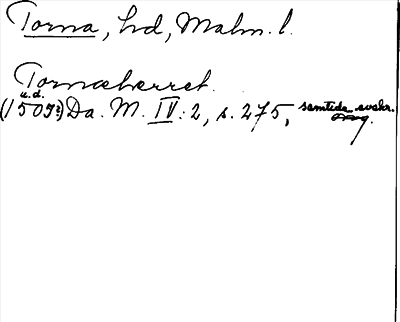 Torna, hd, Malm. l.
Tornæherret.
u. d.
(1505?) Da. M. IV: 2, s. 275, samtida avskr.